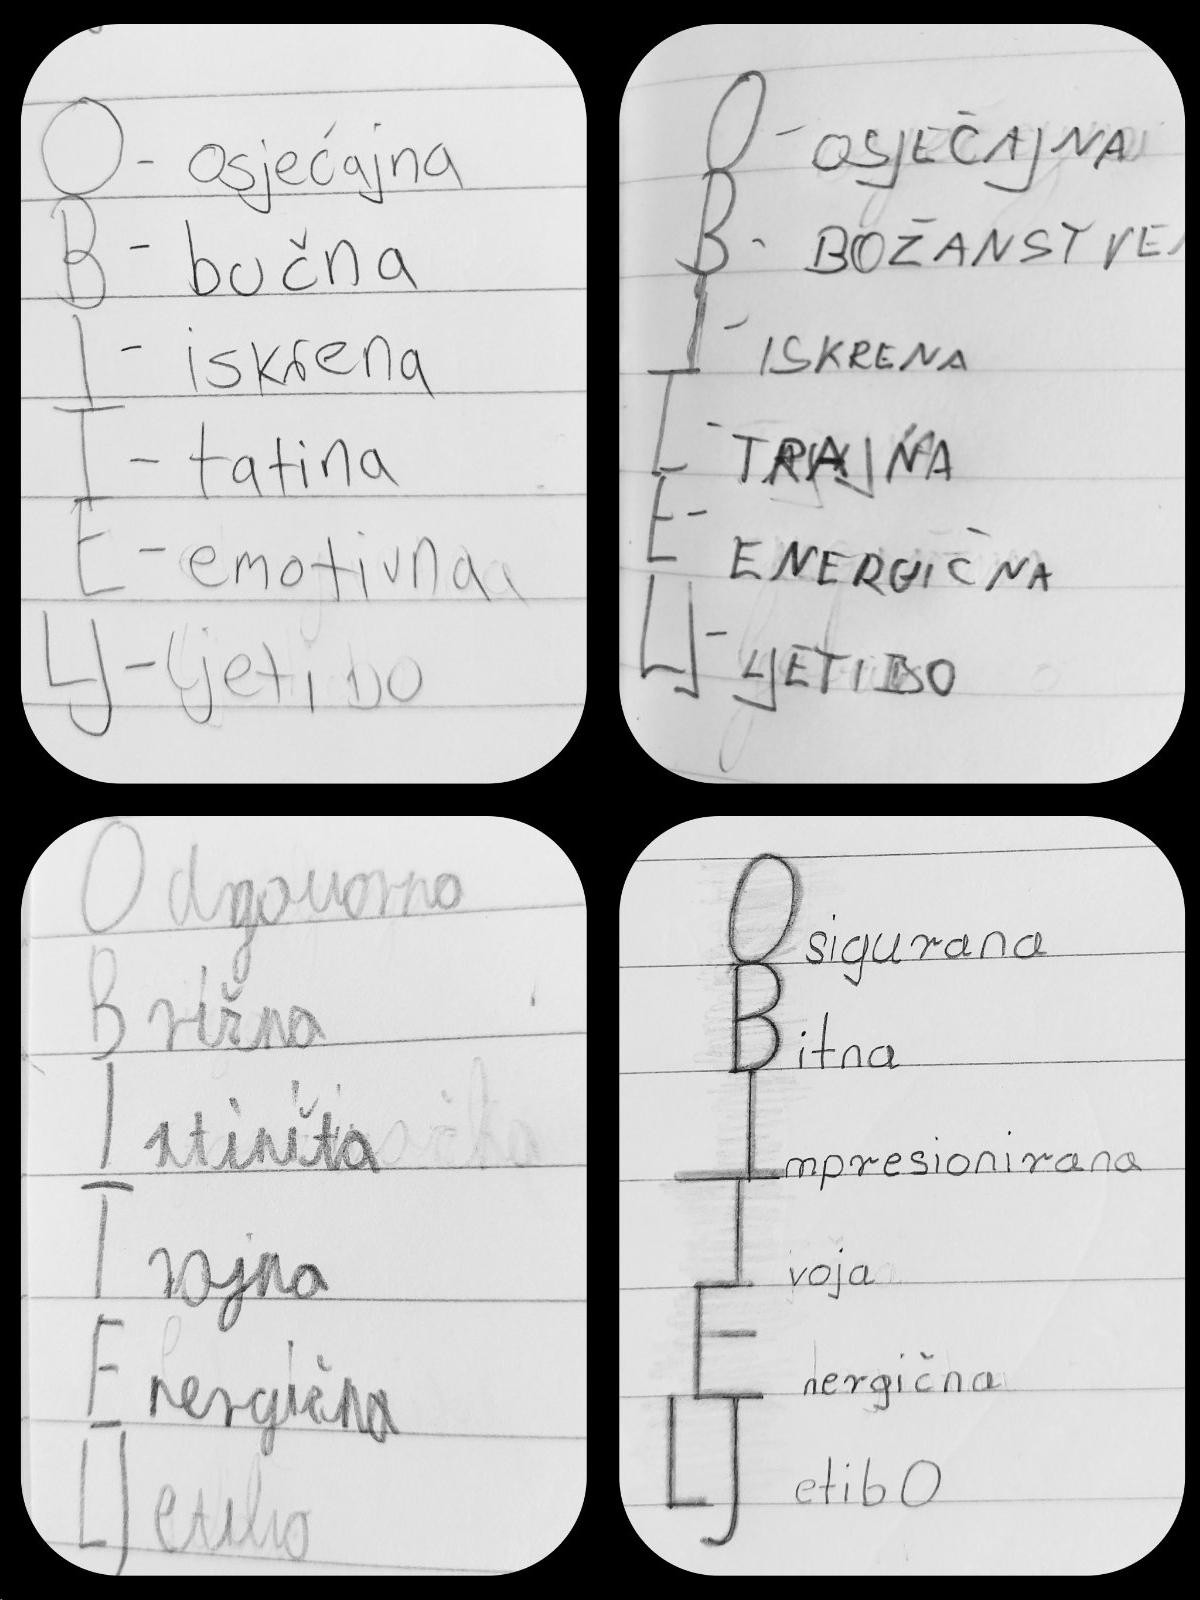 O - osjećajna
B - bučna
I - iskrena
T - tatina
E - emotivna
LJ - ljeti bo
O - OSJEČAJNA
B - BOŽANSTVE
I - ISKRENA
T - TRAJNA
E - ENERGIČNA
LJ - LJETIBO
Odgovorna
Brižna
I
Trajna
Energična
LJetibo
Osigurana
Bitna
Impresionirana
Tvoja
Energična
LJetibO